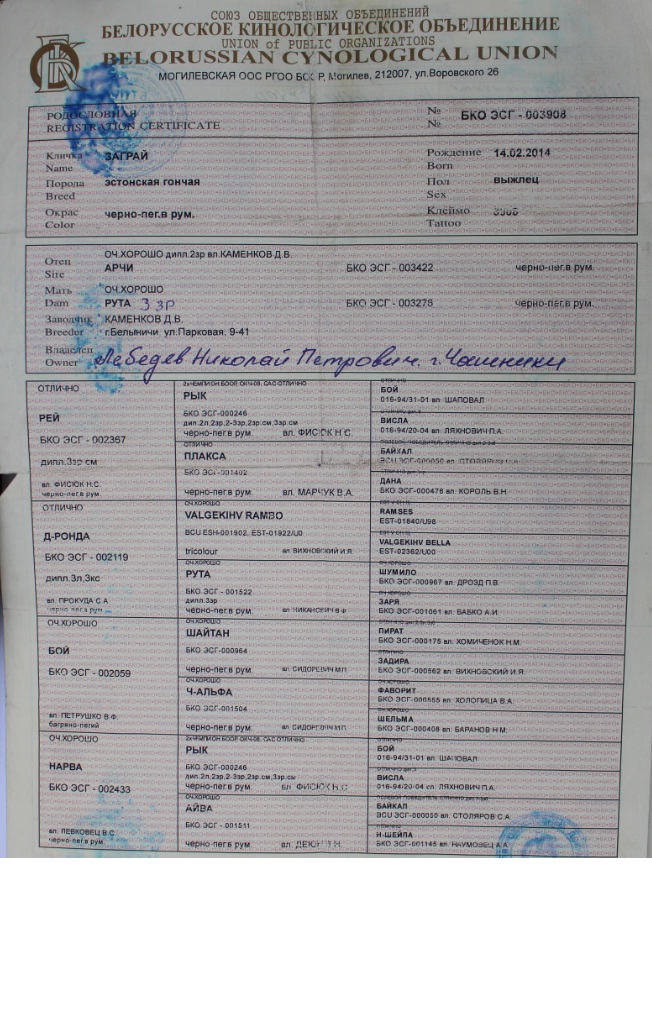 СОЮЗ ОБЩЕСТВЕННЫХ ОБЪЕДИНЕНИЙ
БЕЛОРУССКОЕ КИНОЛОГИЧЕСКОЕ ОБЪЕДИНЕНИЕ
UNION of PUBLIC ORGANIZATIONS
BELORUSSIAN CYNOLOGICAL UNION
МОГИЛЕВСКАЯ ООС РГОО Р, Могилев, 212007, ул.Воровского 26
РОДОСЛОВНАЯ
REGISTRATION CERTIFICATE
№ №
БКО ЭСГ - 003908
Кличка Name ЗАГРАЙ
Рождение Born 14.02.2014
Порода Breed эстонская гончая
Пол Sex выжлец
Окрас Color черно-пег.в рум.
Клеймо Tattoo
Отец Sire ОЧ.ХОРОШО дипл.2зр вл.КАМЕНКОВ Д.В.
АРЧИ БКО ЭСГ - 003422 черно-пег.в рум.
Мать Dam ОЧ.ХОРОШО
РУТА 3 зр БКО ЭСГ - 003275 черно-пег.в рум.
Заводчик Breeder КАМЕНКОВ Д.В.
г.Белыничи, ул.Парковая, 9-41
Владелец Owner Лебедев Николай Петрович. г. Чашники
ОТЛИЧНО
РЕЙ
БКО ЭСГ - 002357
дипл.3зр см
вл. ФИСЮК Н.С.
черно-пег.в рум.
ОТЛИЧНО
Д-РОНДА
БКО ЭСГ - 002119
дипл.3л,3кс
вл. ПРОКУДА С.А
черно-пег.в рум.
ОЧ.ХОРОШО
БОЙ
БКО ЭСГ - 002059
вл. ПЕТРУШКО В.Ф.
багряно-пегий
ОЧ.ХОРОШО
НАРВА
БКО ЭСГ - 002433
вл. ЛЕВКОВЕЦ В.С.
черно-пег.в рум.
РЫК
БКО ЭСГ-000246
дип.2л,2зр,2-3зр,2зр.см,3зр.см
черно-пег.в рум. вл. ФИСЮК Н.С.
ОТЛИЧНО
ПЛАКСА
БКО ЭСГ-001402
черно-пег.в рум. вл. МАРЧУК В.А.
ОЧ.ХОРОШО
VALGEKIHV RAMBO
BCU ESH-001902, EST-01922/U0
tricolour вл. ВИХНОВСКИЙ И.Я.
ОЧ.ХОРОШО
РУТА
БКО ЭСГ - 001522
дипл.3зр
черно-пег.в рум. вл. НИКАНОВИЧ В.Ф.
ОЧ.ХОРОШО
ШАЙТАН
БКО ЭСГ-000964
черно-пег.в рум. вл. СИДОРЕВИЧ М.П.
ОЧ.ХОРОШО
Ч-АЛЬФА
БКО ЭСГ-001504
черно-пег.в рум. вл. СИДОРЕВИЧ М.П.
РЫК
БКО ЭСГ-000246
дип.2л,2зр,2-3зр,2зр.см,3зр.см
черно-пег.в рум. вл. ФИСЮК Н.С
ОЧ.ХОРОШО
АЙВА
БКО ЭСГ - 001511
черно-пег.в рум.
БОЙ
016-94/31-01 вл. ШАПОВАЛ
ВИСЛА
016-94/20-04 вл. ЛЯХНОВИЧ П.А.
БАЙКАЛ
BCU ЭСГ-000050 вл.
ДАНА
БКО ЭСГ-000476 вл. КОРОЛЬ В.Н.
RAMSES
EST-01640/U98
VALGEKIHV BELLA
EST-02362/U00
ШУМИЛО
БКО ЭСГ-000967 вл. ДРОЗД П.В.
ЗАРЯ
БКО ЭСГ-001061 вл. БАБКО А.И.
ПИРАТ
БКО ЭСГ-000175 вл. ХОМИЧЕНОК Н.М.
ЗАДИРА
БКО ЭСГ-000562 вл. ВИХНОВСКИЙ И.Я.
ФАВОРИТ
БКО ЭСГ-000555 вл. ХОЛОПИЦА В.А.
ШЕЛЬМА
БКО ЭСГ-000408 вл. БАРАНОВ Н.М.
БОЙ
016-94/31-01 вл. ШАПОВАЛ
ВИСЛА
016-94/20-04 вл. ЛЯХНОВИЧ П.А.
БАЙКАЛ
BCU ЭСГ-000050 вл. СТОЛЯРОВ С.А.
Н-ШЕЙЛА
БКО ЭСГ-001145 вл. НАУМОВЕЦ А.А.